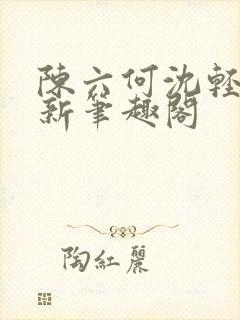 陳六何沈輕
新筆趣閣
陶紅麗